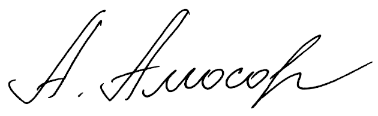 А. Амосов